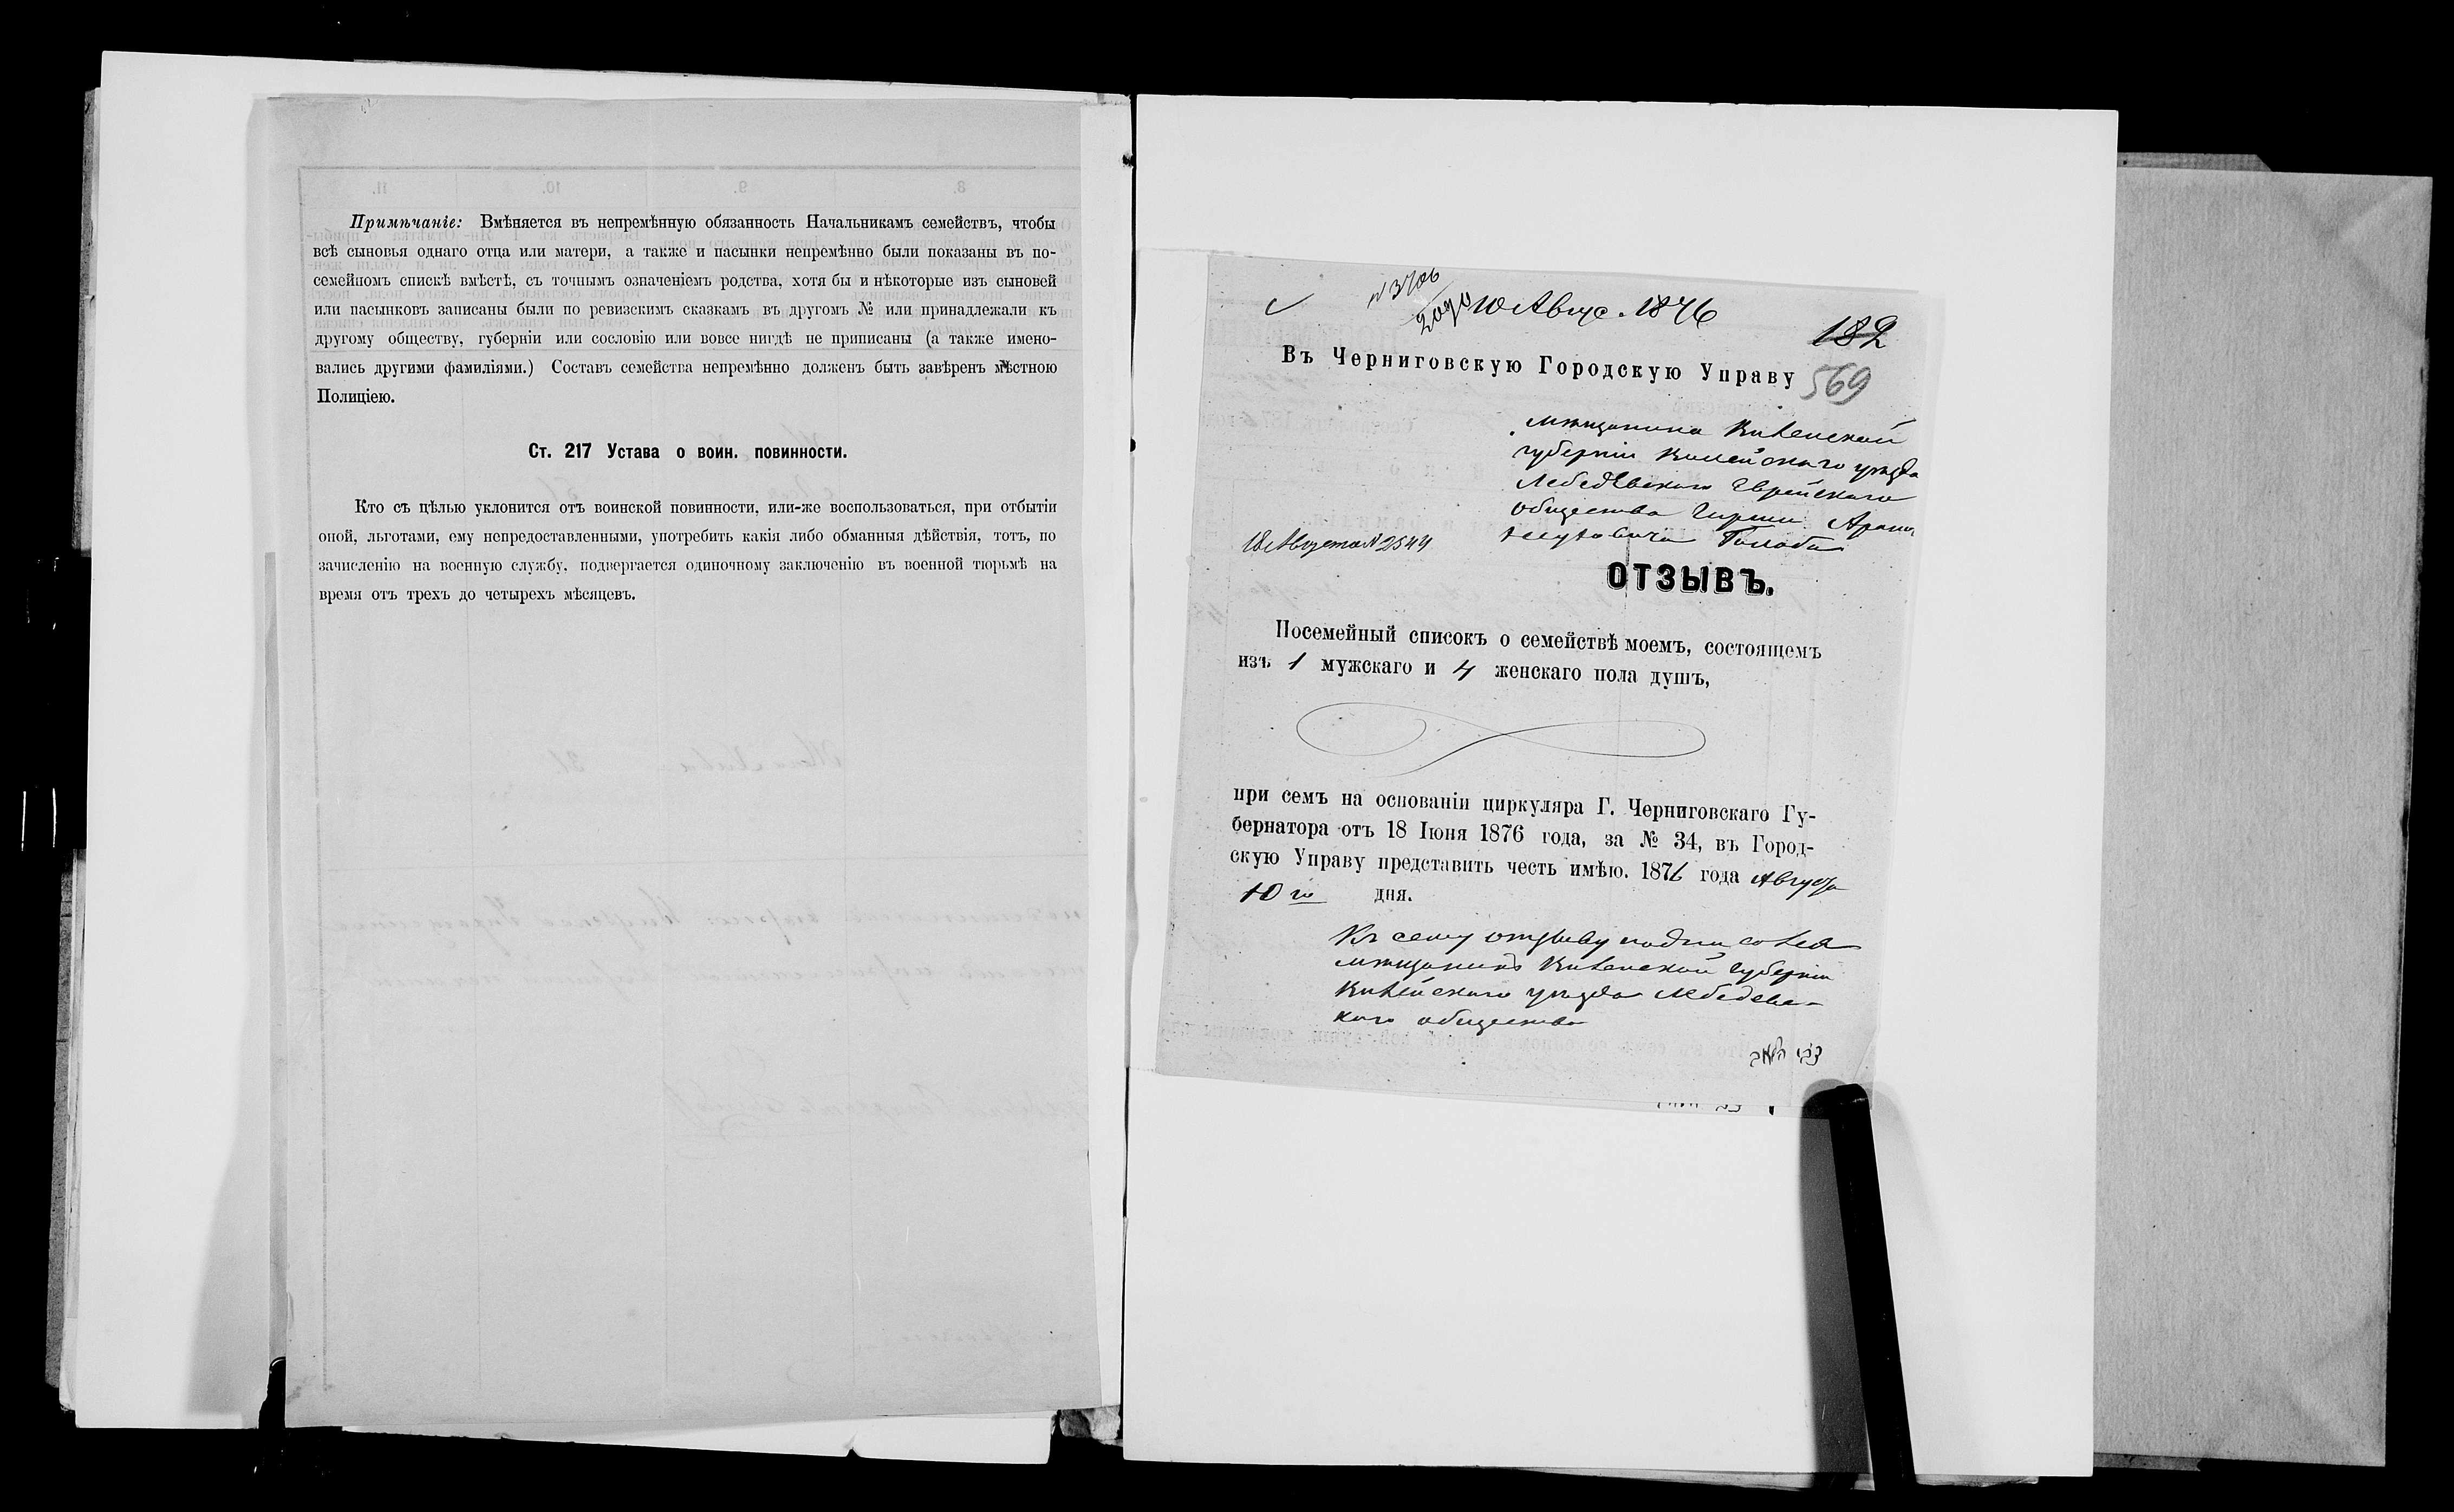 Примѣчаніе: Вмѣняется въ непремѣнную обязанность Начальникамъ семействъ, чтобы
всѣ сыновья однаго отца или матери, а также и пасынки непремѣнно были показаны въ по-
семейномъ спискѣ вмѣстѣ, съ точнымъ означеніемъ родства, хотя бы и нѣкоторые изъ сыновей
или пасынковъ записаны были по ревизскимъ сказкамъ въ другомъ № или принадлежали къ
другому обществу, губерніи или сословію или вовсе нигдѣ не приписаны (а также имено-
вались другими фамиліями.) Составъ семейства непремѣнно долженъ быть завѣренъ мѣстною
Полиціею.
Ст. 217 Устава о воин. повинности.
Кто съ цѣлью уклонится отъ воинской повинности, или-же воспользоваться, при отбытіи
оной, льготами, ему непредоставленными, употребить какія либо обманныя дѣйствія, тотъ, по
зачисленію на военную службу, подвергается одиночному заключенію въ военной тюрьмѣ на
время отъ трехъ до четырехъ мѣсяцевъ.
10 Авгус. 1876
182
Въ Черниговскую Городскую Управу
569
мѣщанина Виленской
губерніи Вилейскаго уѣзда
Лебедѣвскаго Еврейскаго
общества Гирши
18 Августа № 2544
ОТЗЫВЪ.
Посемейный списокъ о семействѣ моемъ, состоящемъ
изъ 1 мужскаго и 4 женскаго пола душъ,
при семъ на основаніи циркуляра Г. Черниговскаго Гу-
бернатора отъ 18 Іюня 1876 года, за № 34, въ Город-
скую Управу представить честь имѣю. 1876 года Августа
10 го дня.
Къ сему отзыву
мѣщанинъ Виленской губерніи
Вилейскаго уѣзда Лебедевс-
каго общества